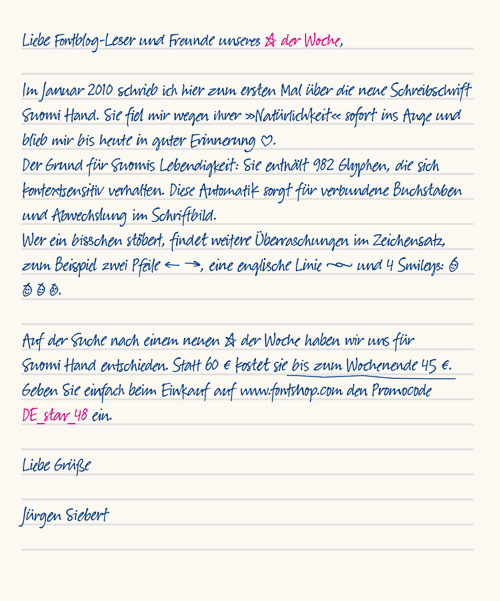 Liebe Fontblog-Leser und Freunde unseres ☆ der Woche,
Im Januar 2010 schrieb ich hier zum ersten Mal über die neue Schreibschrift
Suomi Hand. Sie fiel mir wegen ihrer »Natürlichkeit« sofort ins Auge und
blieb mir bis heute in guter Erinnerung ♡.
Der Grund für Suomis Lebendigkeit: Sie enthält 982 Glyphen, die sich
kontextsensitiv verhalten. Diese Automatik sorgt für verbundene Buchstaben
und Abwechslung im Schriftbild.
Wer ein bisschen stöbert, findet weitere Überraschungen im Zeichensatz,
zum Beispiel zwei Pfeile ← →, eine englische Linie ~ und 4 Smileys: ☺
☺ ☺ ☺.
Auf der Suche nach einem neuen ☆ der Woche haben wir uns für
Suomi Hand entschieden. Statt 60 € kostet sie bis zum Wochenende 45 €.
Geben Sie einfach beim Einkauf auf www.fontshop.com den Promocode
DE_star_48 ein.
Liebe Grüße
Jürgen Siebert